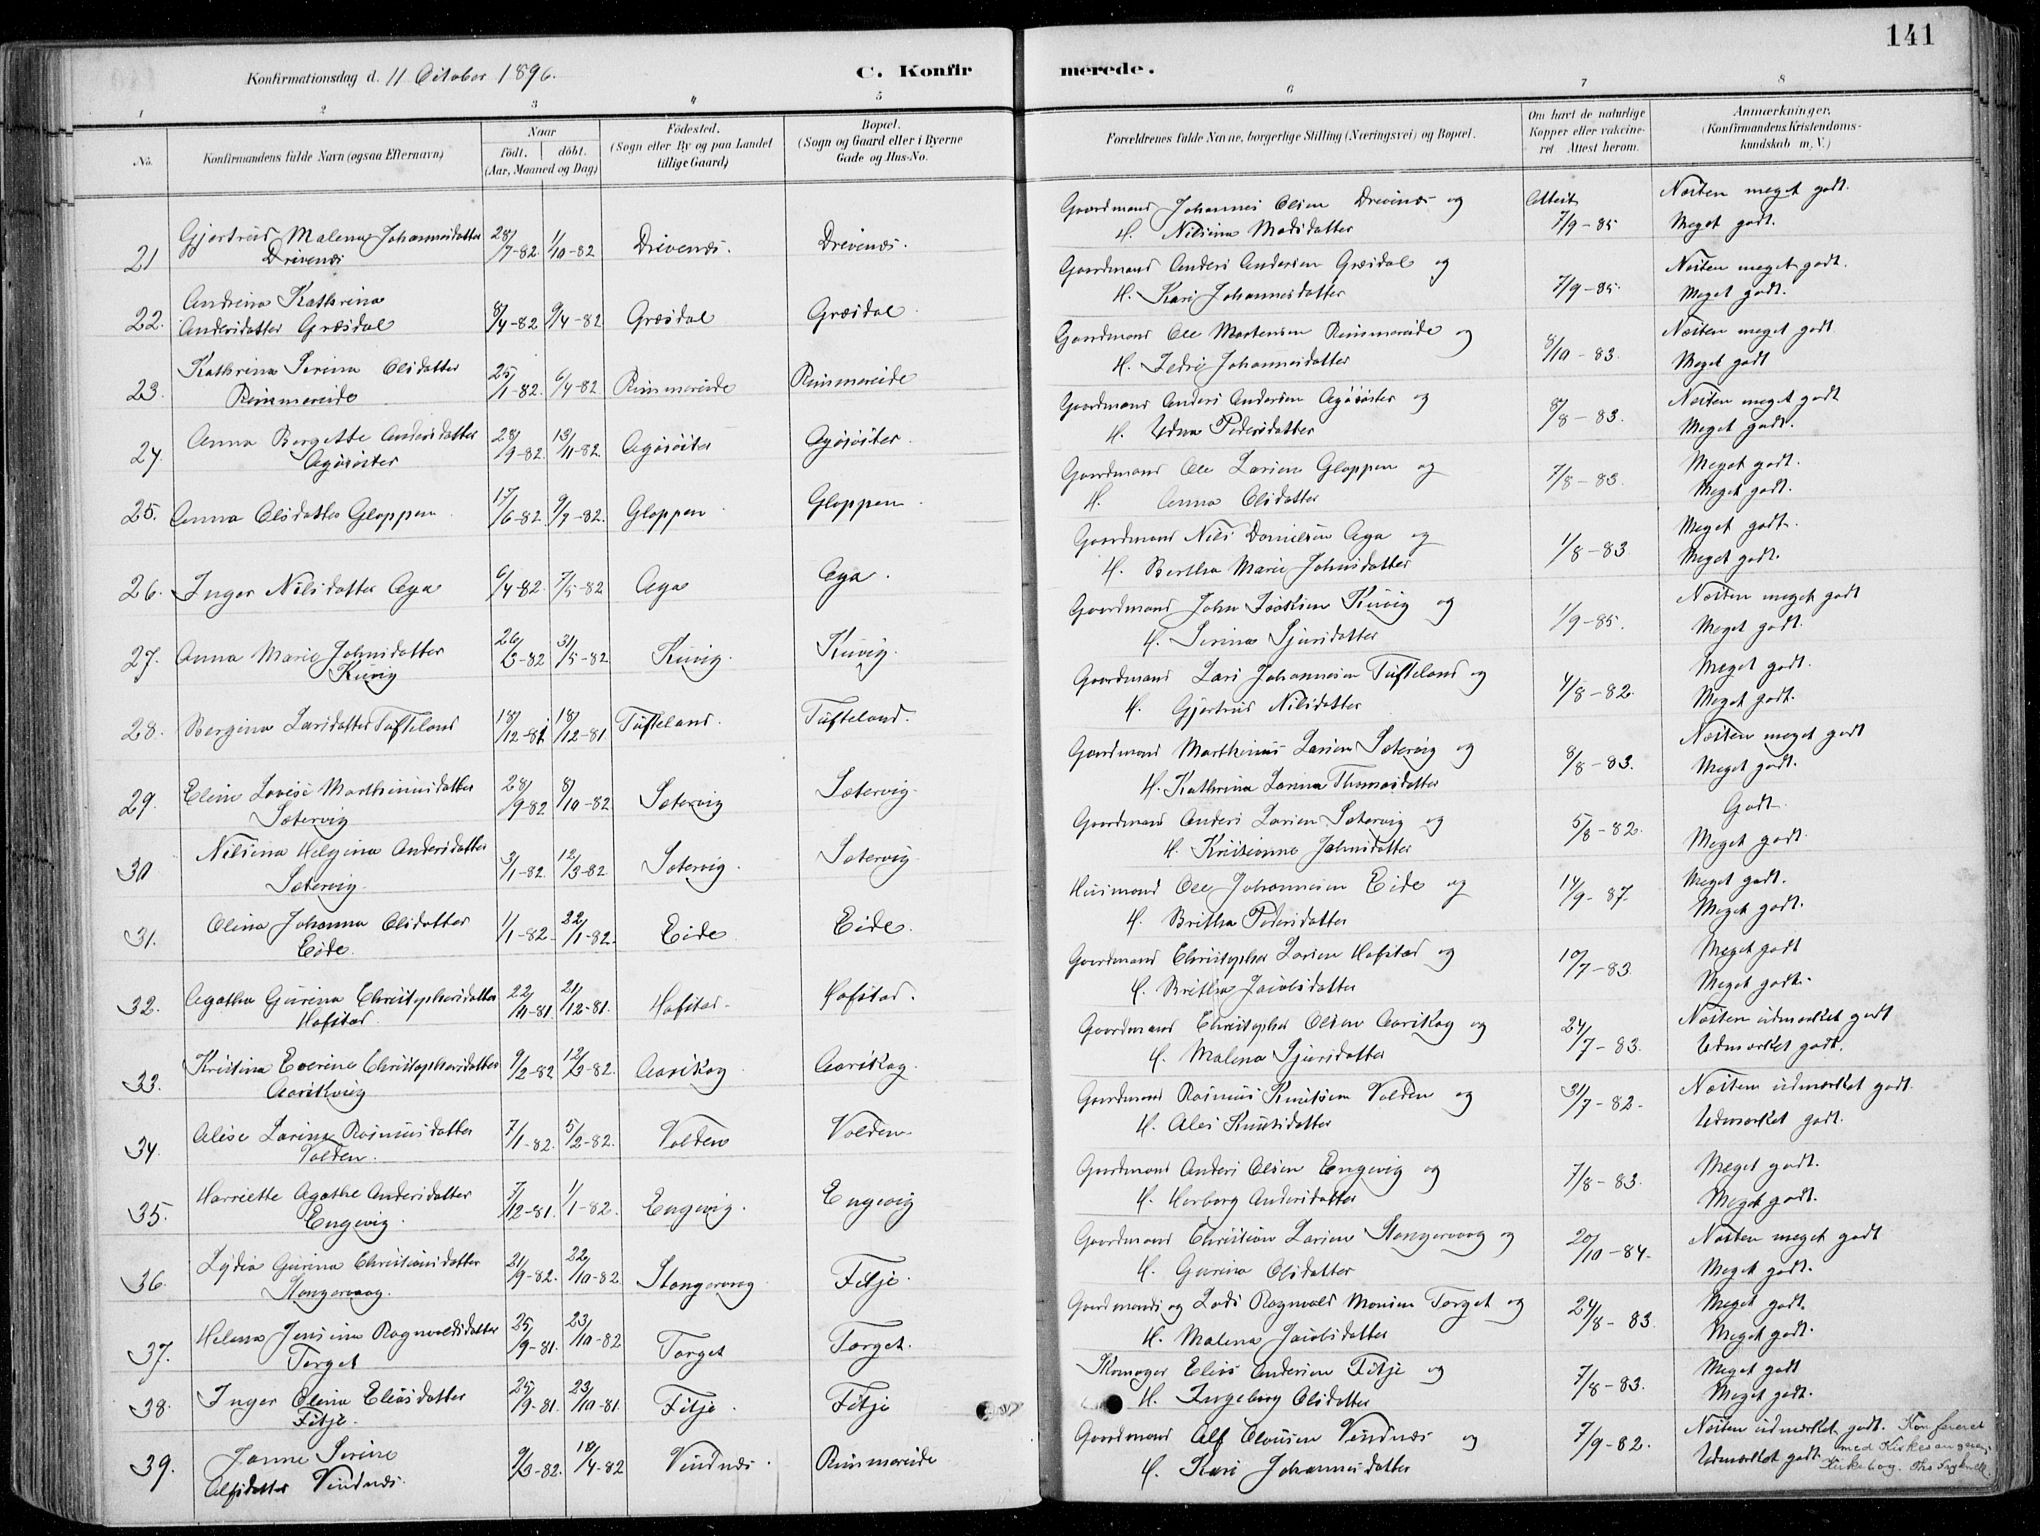 141
Konfirmationsdag d. 11 October 1896.
C. Konfirmerede.
1 2 3 4 5 6 7 8
No.
Konfirmandens fulde Navn (ogsaa Efternavn)
Naar
födt. döbt.
(Aar, Maaned og Dag)
Födested.
(Sogn eller By og paa Landet
tillige Gaard)
Bopæl.
(Sogn og Gaard eller i Byerne
Gade og Hus-No.
Forældrenes fulde Navne, borgerlige Stilling (Næringsvei) og Bopæl.
Om havt de naturlige
Kopper eller vakcine-
ret Attest herom.
Anmærkninger.
(Konfirmandens Kristendoms-
kundskab m. V.)
21 Gjertrud Malena Johannesdatter
Drivenæs
28/7-82 1/10-82 Drivenæs. Drivenæs.
Gaardmand Johannes Olsen Drivenæs og
H. Nilsina Madsdatter
Attest
7/9-85
Næsten meget godt.
Meget godt.
22. Andrina Kathrina
Andersdatter Græsdal
8/4-82 9/4-82 Græsdal Græsdal
Gaardmand Anders Andersen Græsdal og
H. Kari Johannesdatter
7/9-85.
Næsten meget godt.
Meget godt.
23. Kathrina Serina Olsdatter
Rimmereide
25/1-82 6/4-82 Rimmereide Rimmereide
Gaardmand Ole Mortensen Rimmereide og
H. Sedsi Johannesdatter
8/10-83.
Næsten meget godt
Meget godt
24. Anna Bergette Andersdatter
Agösöster
28/9-82 13/11-82 Agösöster Agösöster.
Gaardmand Anders Andersen Agösöster og
H. Edna Pedersdatter
8/8-83.
Næsten meget godt
Meget godt.
25. Anna Olsdatter Gloppen
17/6-82. 9/7-82. Gloppen Gloppen
Gaardmand Ole Larsen Gloppen og
H. Anna Olsdatter
7/8-83.
Meget godt.
Meget godt.
26. Inger Nilsdatter Aga
6/4-82. 7/5-82 Aga Aga.
Gaardmand Nils Danielsen Aga og
H. Bertha Marie Johnsdatter
1/8-83.
Meget godt.
Meget godt.
27. Anna Marie Johnsdatter
Kuvig
26/3-82 31/5-82 Kuvig. Kuvig.
Gaardmand John Isaksen Kuvig og
H. Serina Sjursdatter
1/9-85.
Næsten meget godt
Meget godt.
28. Bergina Larsdatter Tufteland
18/12-81 18/12-81 Tufteland. Tufteland.
Gaardmand Lars Johannesen Tufteland og
H. Gjertrud Nilsdatter
4/8-82.
Meget godt.
Meget godt.
29. Eline Lovise Marthinusdatter
Sætervig
28/9-82 8/10-82 Sætervig Sætervig.
Gaardmand Marthinus Larsen Sætervig og
H. Kathrina Larina Thomasdatter
8/8-83.
Næsten meget godt
Meget godt.
30 Nilsina Helgina Andersdatter
Sætervig.
3/1-82. 12/3-82 Sætervig. Sætervig
Gaardmand Anders Larsen Sætervig og
H. Kristianne Johnsdatter
5/8-82.
Godt.
Meget godt.
31. Olina Johanna Olsdatter
Eide.
1/1-82. 22/1-82. Eide Eide.
Husmand Ole Johannesen Eide og
H. Britha Pedersdatter
14/9-87.
Meget godt.
Meget godt.
32. Agatha Gurina Christophersdatter
Hofstad.
22/11-81. 21/12-81. Hofstad. Hofstad.
Gaardmand Christopher Larsen Hofstad og
H. Britha Jacobsdatter
10/7-83
Meget godt
Meget godt.
33. Kristina Everine Christophersdatter
Aarskoug
9/2-82 12/2-82. Aarskog Aarskog.
Gaardmand Christopher Olsen Aarskog og
H. Malena Sjursdatter
24/7-83.
Næsten udmærket godt
Udmærket godt.
34. Alise Larina Rasmusdatter
Volden.
7/1-82. 5/2-82. Volden Volden
Gaardmand Rasmus Knutsen Volden og
H. Ales Knutsdatter
31/7-82.
Næsten udmærket godt.
Udmærket godt.
35. Harriette Agathe Andersdatter
Engevig.
7/12-81. 1/1-82. Engevig. Engevig
Gaardmand Anders Olsen Engevig og
H. Herborg Andersdatter
7/8-83.
Meget godt.
Meget godt.
36. Lydia Gurina Christiansdatter
Stangervaag.
21/9-82. 22/10-82 Stangervaag Fitje.
Gaardmand Christian Larsen Stangervaag og
H. Gurina Olsdatter
20/10-84.
Næsten meget godt
Meget godt.
37. Helena Jensina Ragnvaldsdatter
Torget
25/9-81. 23/10-82 Torget Torget.
Gaardmand og Lods Ragnvald Monsen Torget og
H. Malena Jacobsdatter
24/8-83.
Meget godt.
Meget godt.
38. Inger Olina Eliasdatter
Fitje.
25/9-81. 23/10-81. Fitje. Fitje
Skomager Elias Andersen Fitje og
H. Ingeborg Olsdatter
7/8-83.
Meget godt
Meget godt.
39. Janne Serine
Alfsdatter Vindnæs.
9/3-82. 10/4-82 Vindnæs. Rimmereide
Gaardmand Alf Clausen Vindnæs og
H. Kari Johannesdatter
7/9-82.
Næsten udmærket godt. Konfereret
Udmærket godt. med Kirkesangerens
Kirkebog.